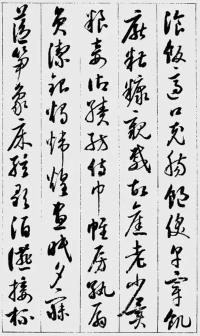 飡飯適口充腸飽飫烹宰飢
厭糟糠親戚故舊老少異
糧妾御績紡侍巾帷房紈扇
員潔銀燭煒煌晝眠夕寐
藍笋象床弦歌酒讌接杯